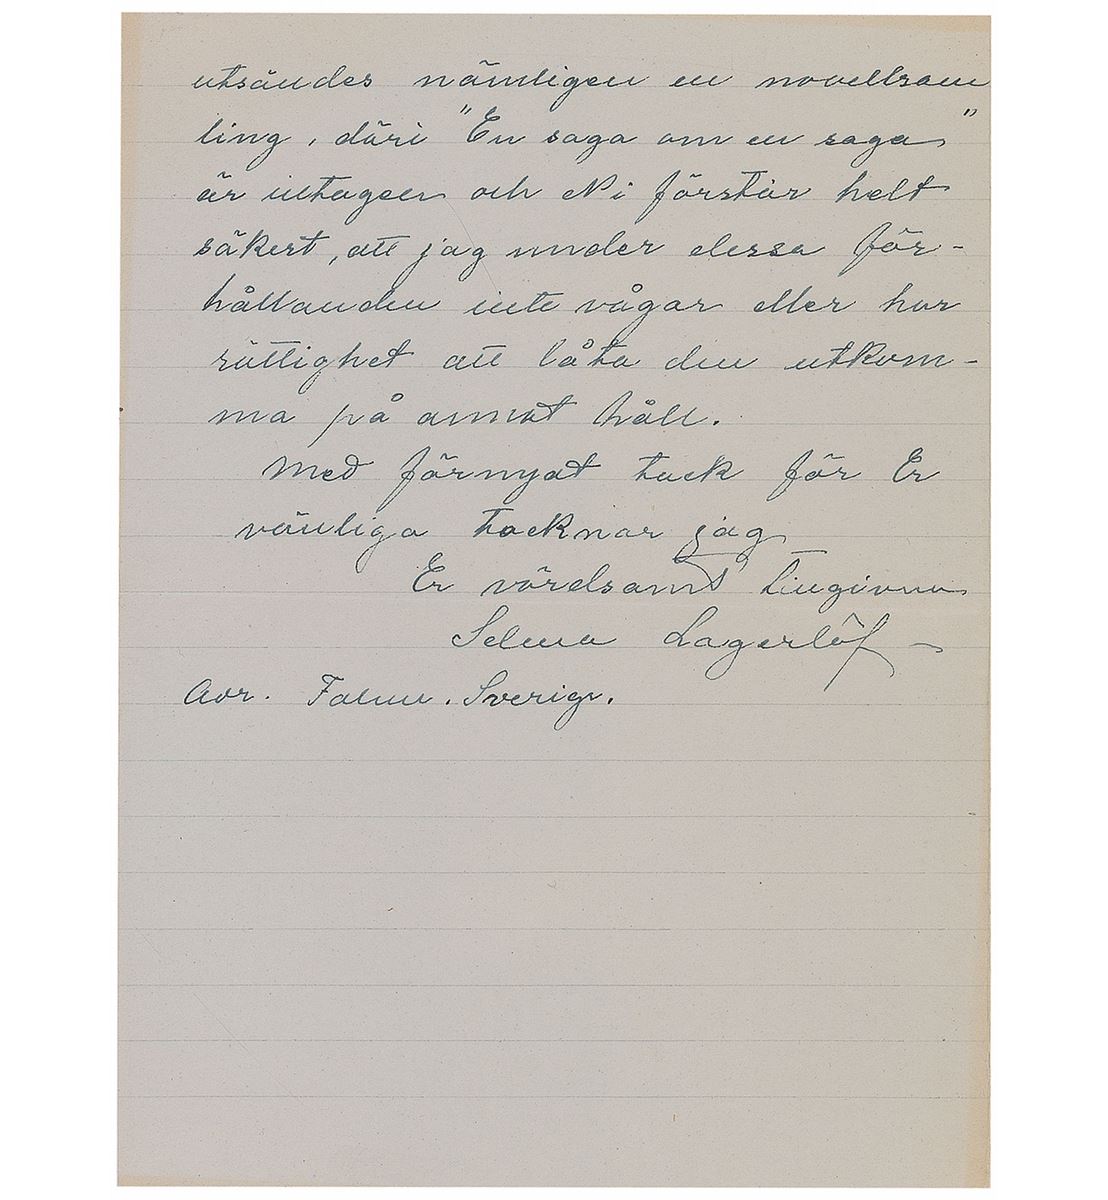 utsändes nämligen en novellsam
ling, däri "En saga om en saga"
är intagen och Ni förstår helt
säkert, att jag under dessa för-
hållanden inte vågar eller har
rättighet att låta den utkom-
ma på annat håll.
Med förnyat tack för Er
vänliga tecknar jag
Er vördsamt tillgivna
Selma Lagerlöf
Adr. Falun. Sverige.